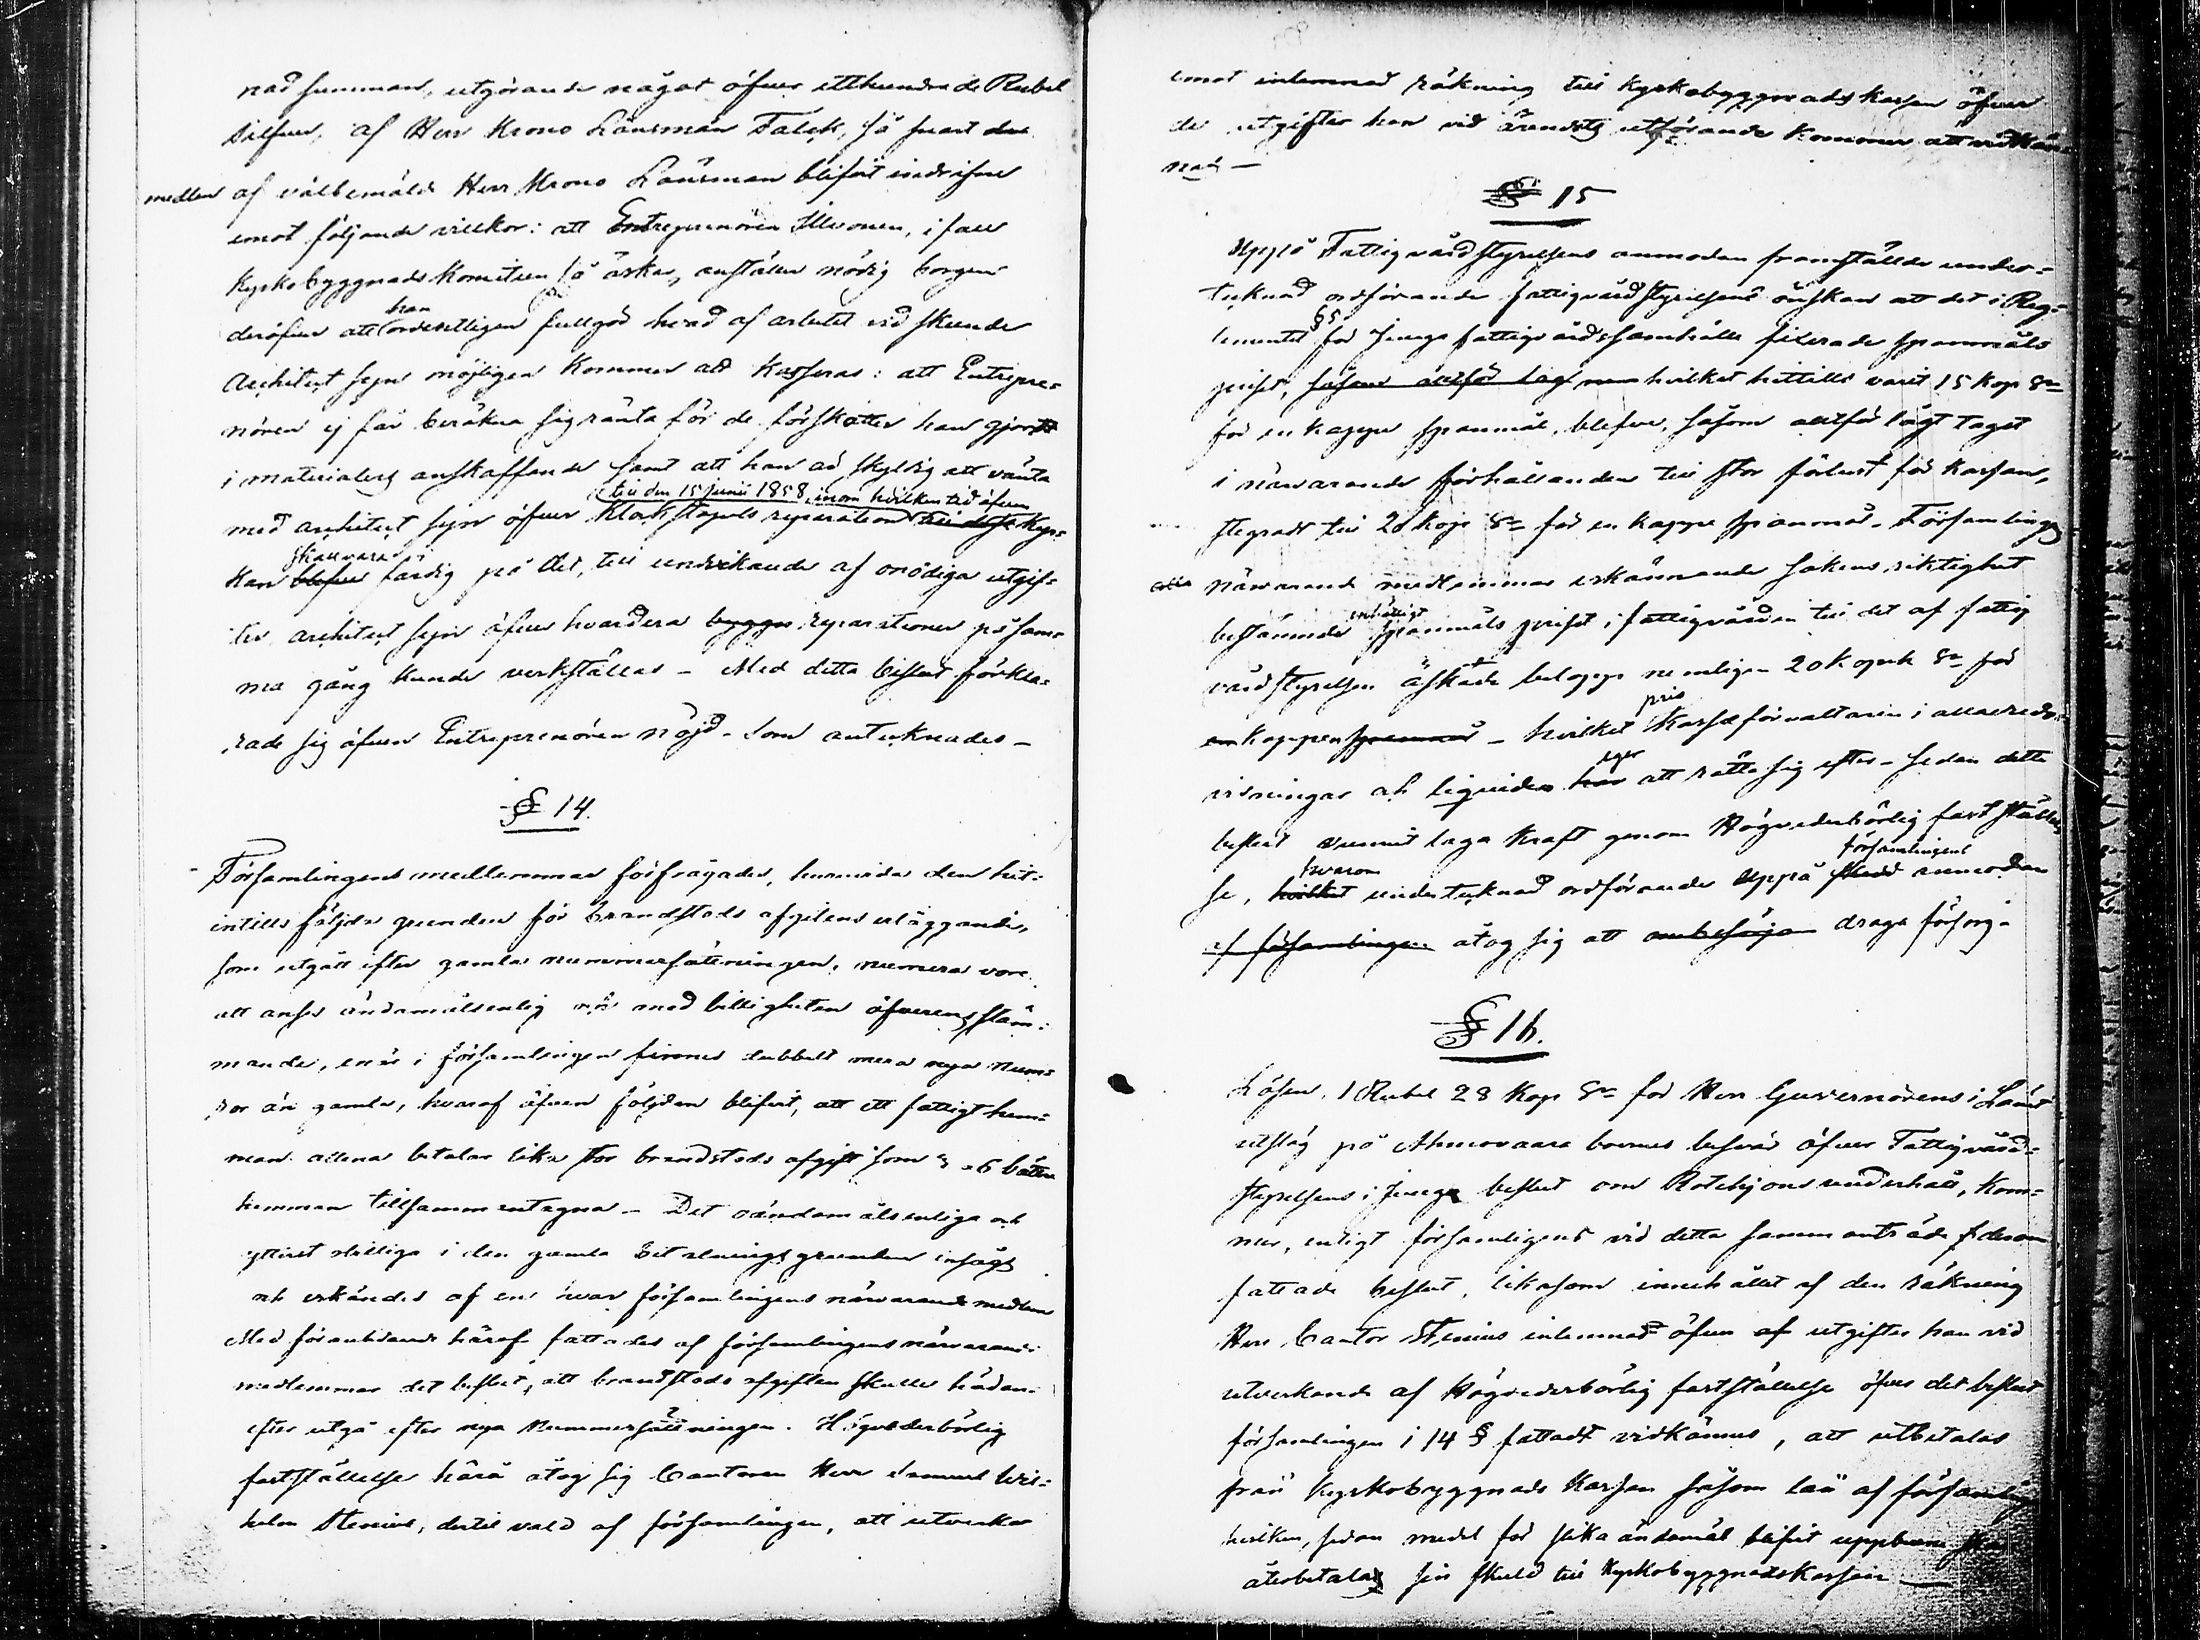 nad summan, utgörande något öfver etthundrade Rubel
silfver, af Herr Krono Länsman Falck, så snart
medlen af välbemälde Herr Krono Länsman blifvit indrifne
emot följande villkor: att Entreprenören Ilvonen, i fall
Kyrkobyggnads Komiteen så äskar, anställer nödig borgen
deröfver att han ordentligen fullgör hvad af arbetet vid skeende
Architect syn möjligen kommer att kasseras: att Entrepre-
nören ej får beräkna sig ränta för de förskotter han gjort
i materialiers anskaffande samt att han är skyldig att vänta
till den 15 Junii 1858, inom hvilken tid äfven
med architect syn öfver Klockstapels reparation till dess Kyr-
kan skall vara blifver färdig på det, till undvikande af onödiga utgif-
ter, architect syn öfver hvardera byggn reparationer på sam-
ma gång kunde verkställas – Med detta beslut förkla-
rade sig äfven Entreprenören nöjd – Som antecknades –
§ 14.
Församlingens medlemmar förfrågades, huruvida den hit-
intills följda grunden för brandstods afgiftens erläggande,
som utgått efter gamla nummersättningen, numera vore
att anse ändamålsenlig och med billigheten öfverensstäm-
mande, enär i församlingen finnes dubbelt mera nya num-
ror än gamla, hvaraf äfven följden blifvit, att ett fattigt hem-
man allena betalar lika stor brandstods afgift som 5 a 6 bättre
hemman tillsammantagna – Det oändamålsenliga och
ytterst obilliga i den gamla betalnings grunden insågs
och erkändes af en hvar församlingens närvarande medlem
Med föranledande häraf fattades af församlingens närvarande
medlemmar det beslut, att brandstods afgiften skulle hädan-
efter utgå efter nya Nummersättningen. Högvederbörlig
fastställelse härå åtog sig Cantoren Herr Samuel Wil-
helm Stenius, dertill vald af församlingen, att utverka
emot inlemnad räkning till Kyrkobyggnads kassan öfver
de utgifter han vid ärendets utförande kommer att vidkän-
nas –
§ 15
Uppå Fattigvårdstyrelsens anmodan framställde under-
tecknad ordförande fattigvårdstyrelsens önskan att det i Reg-
lementet § 5 för Juuga fattigvårdssamhälle fixerade spannmåls
priset, såsom alltför lågt hvilket hittills varit 15 kop Sr
för en kappe spanmål, blefve, såsom alltför lågt taget
i närvarande förhållanden till stor förlust för kassan,
stegradt till 20 kop Sr för en kappe spanmål. Församlingens
närvarande medlemmar erkännande sakens riktighet
bestämde enhälligt spannmåls priset i fattigvården till det af fattig
vårdstyrelsen äskade belopp nemligen 20 Kopek Sr för
en kappen spanmål – hvilket pris Kasseförvaltaren i alla redo-
visningar och liquider har eger att rätta sig efter – sedan detta
beslut vunnit laga kraft genom Högvederbörlig fastställel-
se, hvilket hvarom undertecknad ordförande uppå skedd församlingens anmodan
af församlingen åtog sig att ombesörja draga försorg.
§ 16.
Lösen 1 Rubel 28 Kop Sr för Herr Guvernörens i Länet
utslag på Ahmovaara boernes besvär öfver Fattigvård-
styrelsens i Juuga beslut om Rotehjons underhåll, kom-
mer, enligt församligens vid detta sammanträde
fattade beslut, likasom innehållet af den räkning
Herr Cantor Stenius inlemnad öfver af utgifter han vid
utverkande af Högvederbörlig fastställelse öfver det beslut
församlingen i 14 § fattadt vidkännes, att utbetalas
från Kyrkobyggnads Kassan såsom lån af församling
hvilken, sedan medel för slika ändamål blifvit uppburne
återbetalas sin skuld till Kyrkobyggnadskassan —